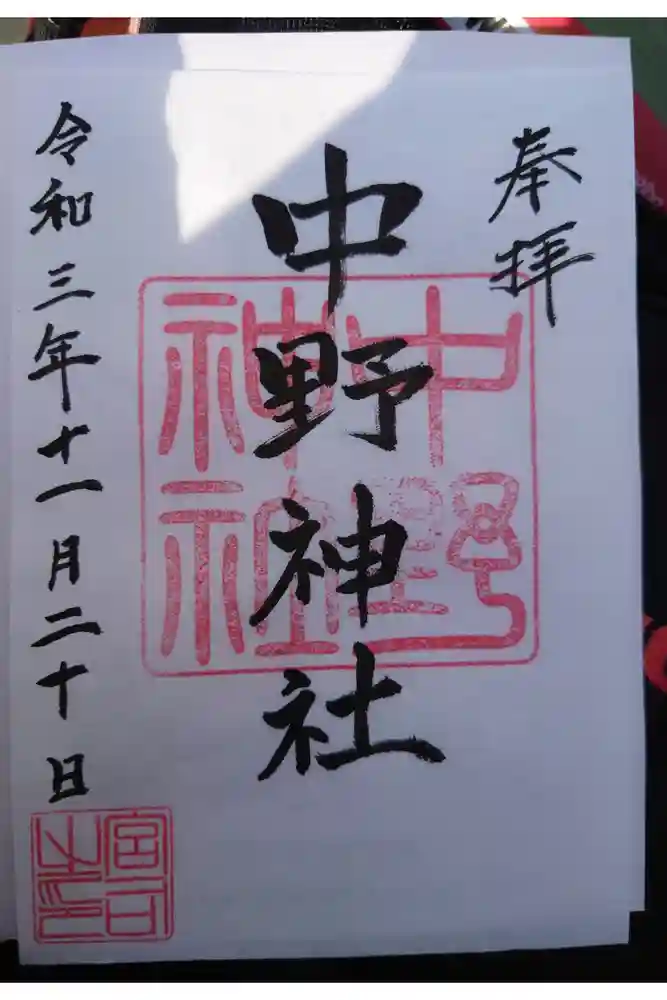 奉拝
中野神社
令和三年十一月二十日
中野
神社
宮司
之印